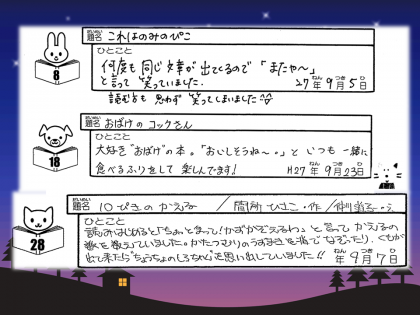 だいめい
題名 これはのみのぴこ
ひとこと
何度も同じ文章が出てくるので「またや〜」
と言って笑っていました。
27年9月5日
読む方も 思わず 笑ってしまいました^^
8
だいめい
題名 おばけのコックさん
ひとこと
大好き"おばけ"の本。「おいしそうね〜。」と いつも 一緒に
食べるふりをして 楽しんでます!
H27年9月23日
18
だいめい
題名 10ぴきのかえる /間所ひさこ・作/仲川道子・
ひとこと
読みはじめると「ちょっとまって!かずかぞえるわ」と言ってかえるの
数を数えていました。かたつむりのうずまきを指でなぞったり、くもが
出て来たら"ちょうちょのしろちゃん"を思い出していました!!
年9月7日
28